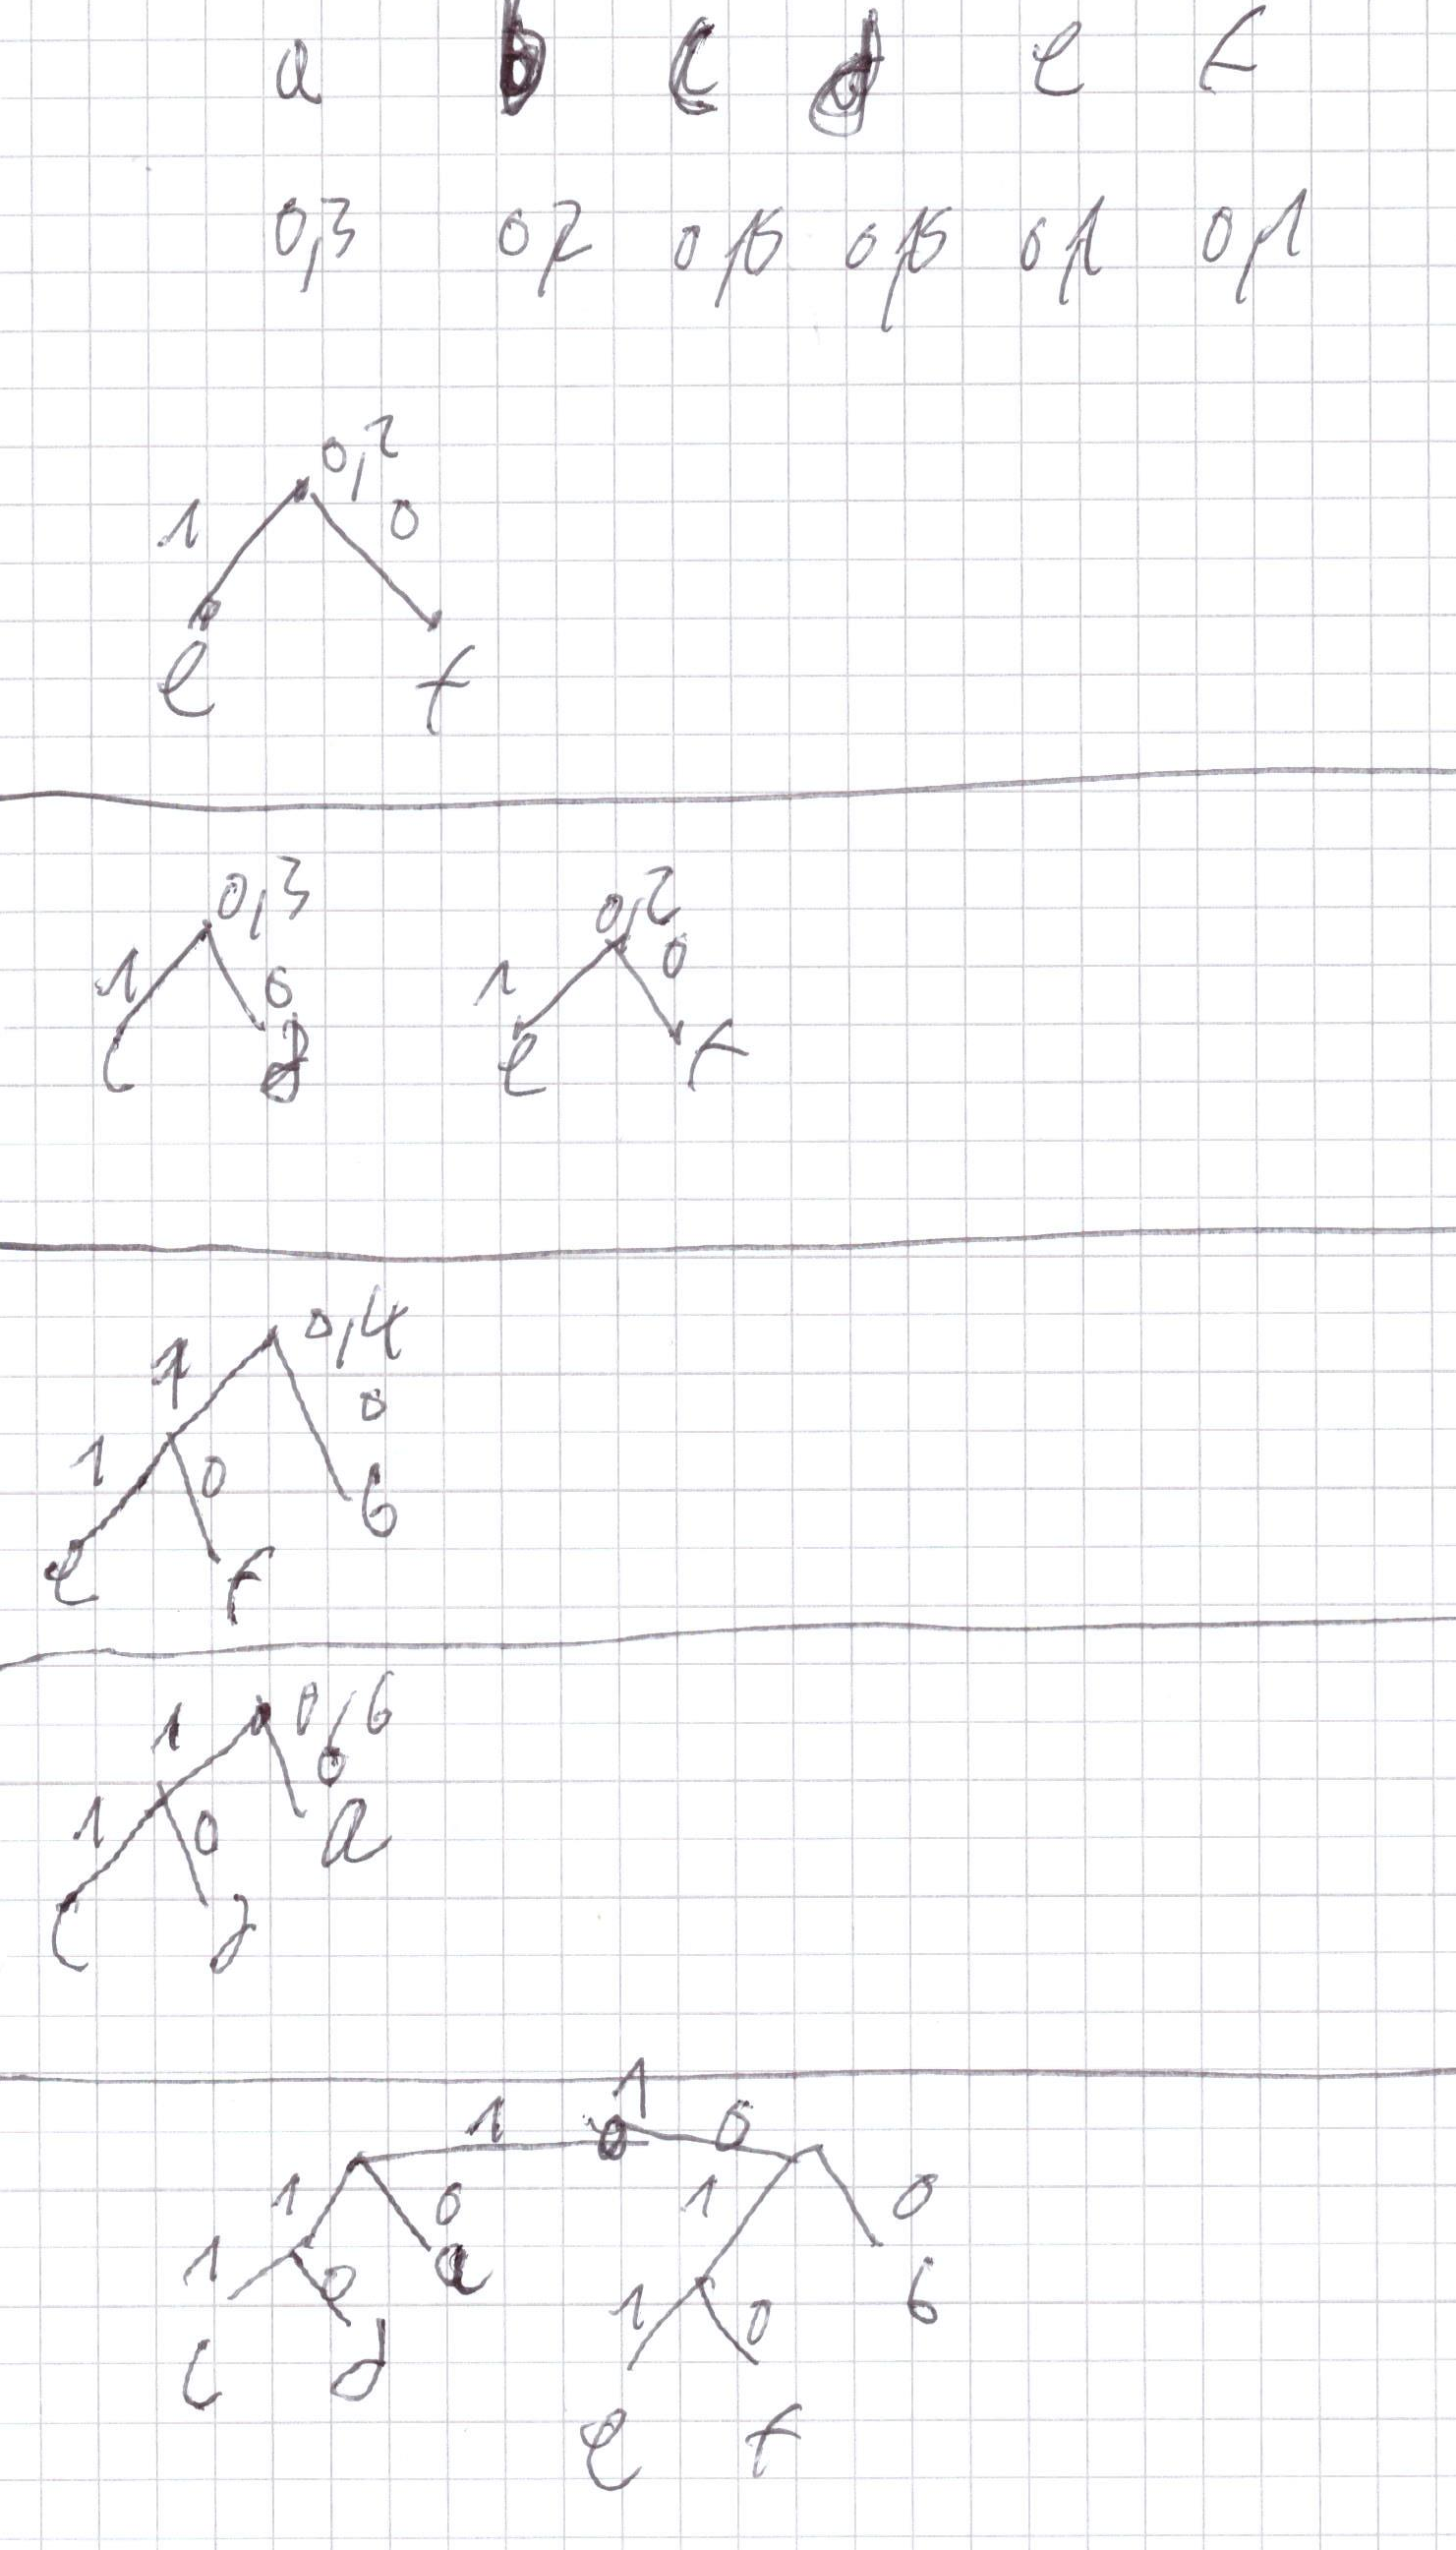 a b c d e f
0,3 0,2 0,15 0,15 0,1 0,1
0,2
1 0
e f
0,3 0,2
1 0 1 0
c d e f
0,4
1 0
1 0 b
e f
0,6
1 0
1 0 a
c d
1
1 0
1 0 1 0
1 0 a 1 0 b
c d e f